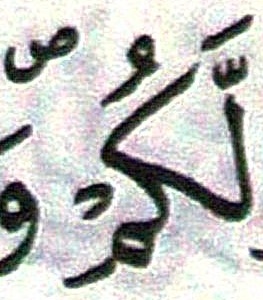 لَّكُمْ ۖ و